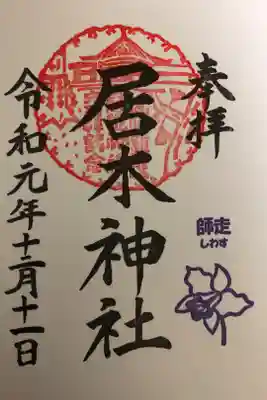 奉拝
師走
しわす
居木神社
令和元年十二月十一日